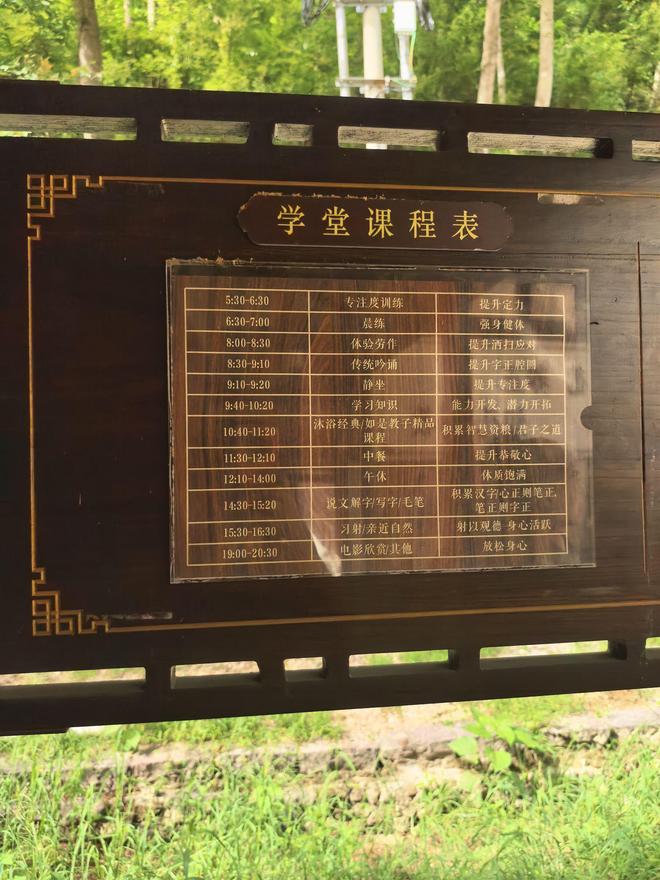 学堂课程表
5:30-6:30 专注度训练 提升定力
6:30-7:00 晨练 强身健体
8:00-8:30 体验劳作 提升洒扫应对
8:30-9:10 传统吟诵 提升字正腔圆
9:10-9:20 静坐 提升专注度
9:40-10:20 学习知识 能力开发、潜力开拓
10:40-11:20 沐浴经典/如是教子精品课程 积累智慧资粮/君子之道
11:30-12:10 中餐 提升恭敬心
12:10-14:00 午休 体质饱满
14:30-15:20 说文解字/写字/毛笔 积累汉字/心正则笔正,笔正则字正
15:30-16:30 习射/亲近自然 射以观德 身心活跃
19:00-20:30 电影欣赏/其他 放松身心